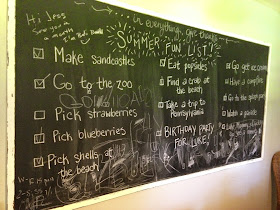 Hi Jess
See you in
a month
in everything, give thanks
SUMMER FUN LIST!
Make sandcastles
Go to the zoo
Pick strawberries
Pick blueberries
Pick shells at
the beach
Eat popsicles
Find a crab at
the beach
Take a trip to
Pennsylvania
BIRTHDAY PARTY
FOR LUKE!
Go get ice cream
Have a campfire
Go to the splash
Watch a parade